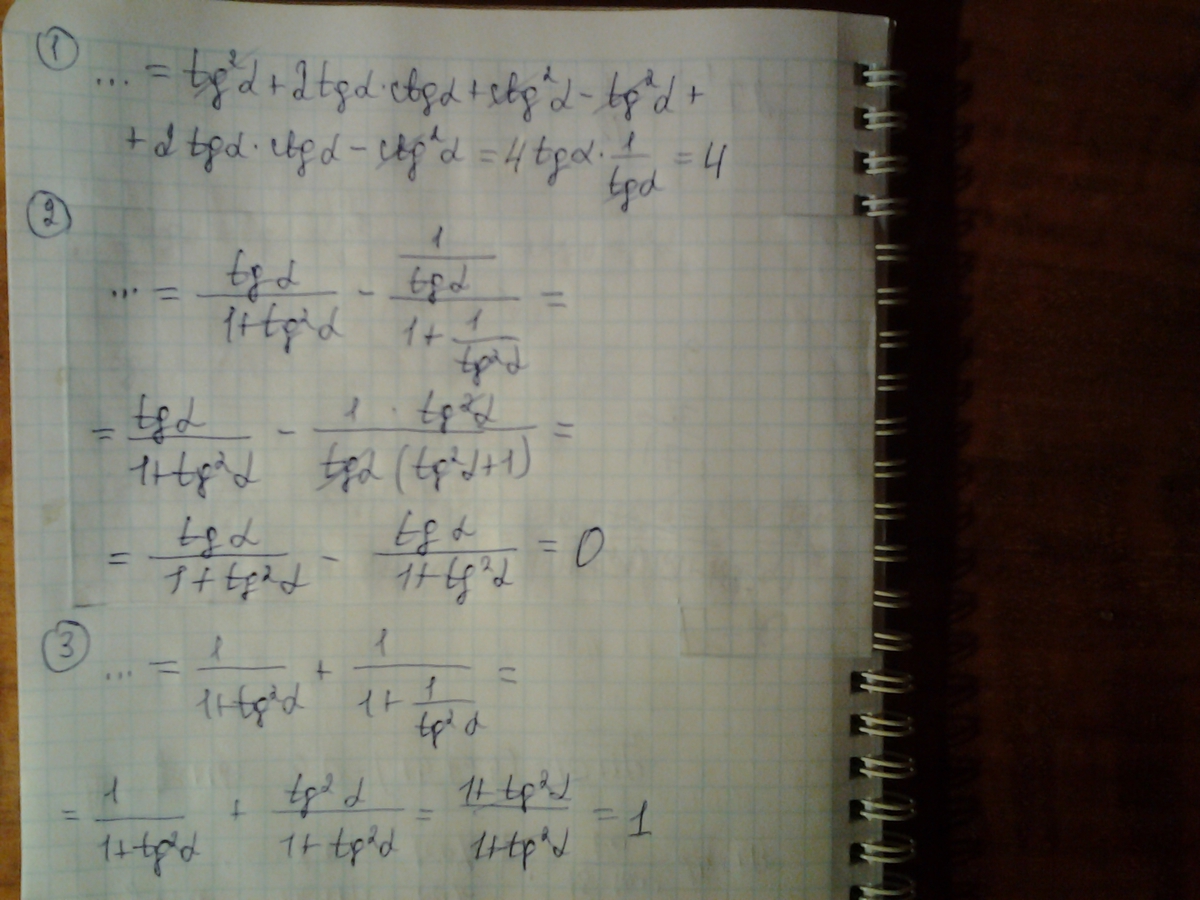 ① ... = tg²α + 2tgα·ctgα + ctg²α - tg²α +
+ 2 tgα · ctgα - ctg²α = 4 tgα · 1/tgα = 4
②
... = tgα/(1+tg²α) - (1/tgα)/(1 + 1/tg²α) =
= tgα/(1+tg²α) - (1 · tg²α)/(tgα (tg²α+1)) =
= tgα/(1+tg²α) - tgα/(1+tg²α) = 0
③ ... = 1/(1+tg²α) + 1/(1 + 1/tg²α) =
= 1/(1+tg²α) + tg²α/(1+tg²α) = (1+tg²α)/(1+tg²α) = 1